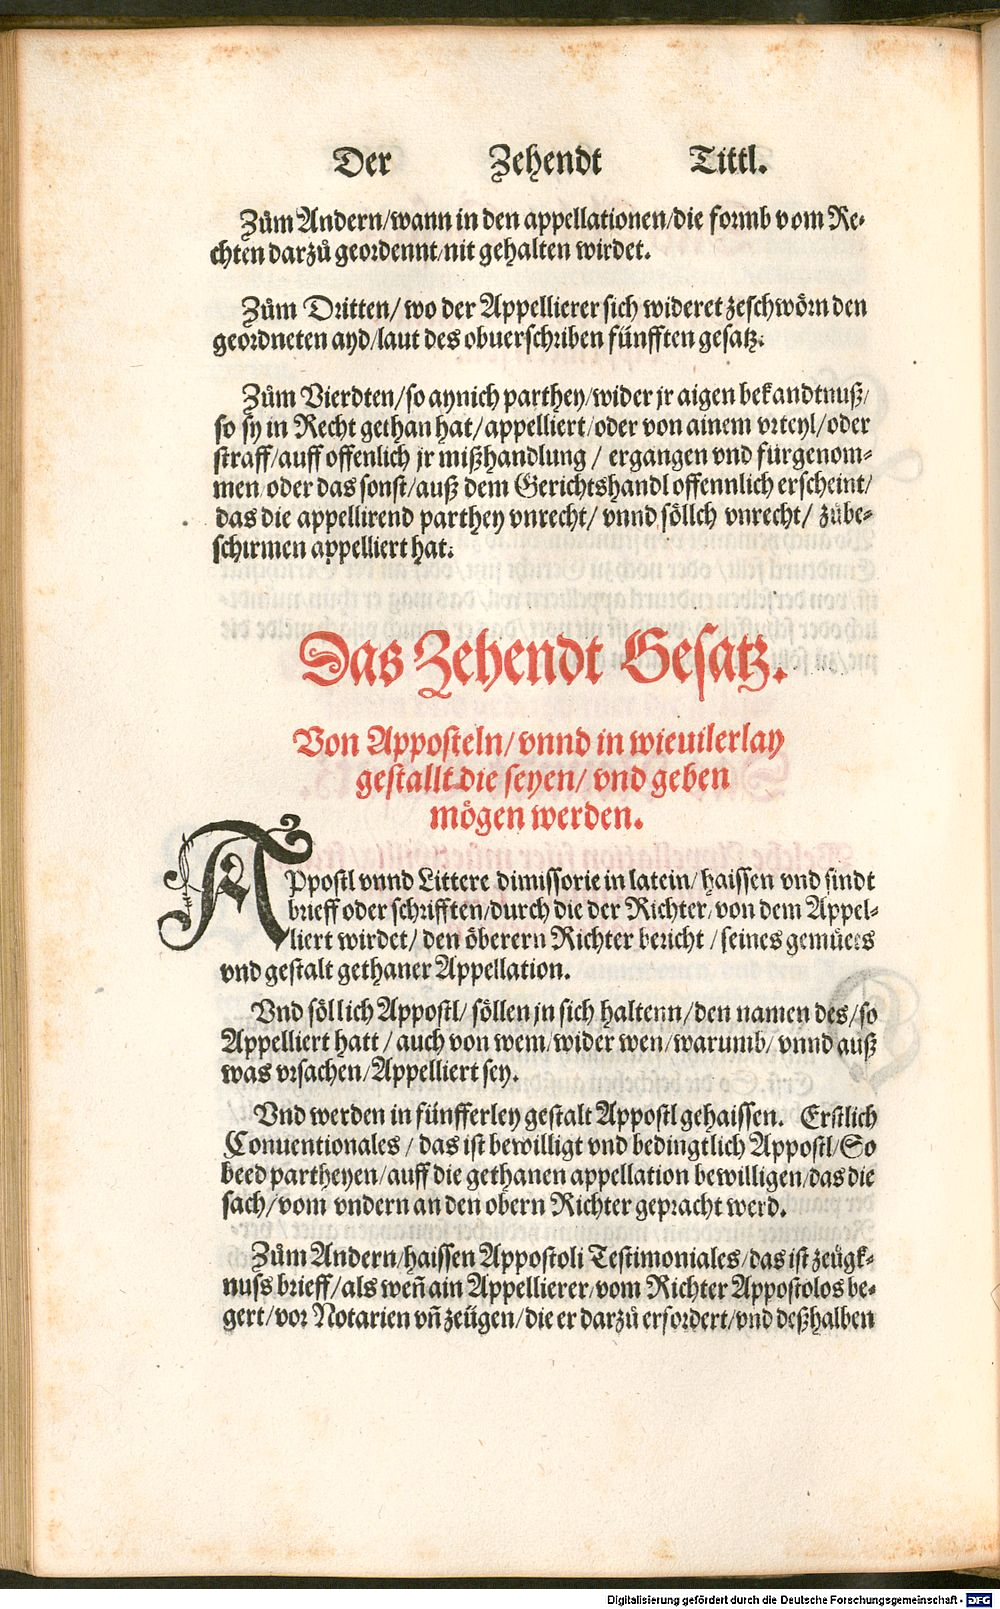 Der Zehendt Tittl.
Zům Andern/wann in den appellationen/die formb vom Re-
chten darzů geordennt/nit gehalten wirdet.
Zům Dritten/wo der Appellierer sich wideret zeschwörn den
geordneten ayd/laut des obuerschriben fünfften gesatz.
Zům Vierdten/so aynich parthey/wider jr aigen bekandtnuß/
so sy in Recht gethan hat/appelliert/oder von ainem vrteyl/oder
straff/auff offenlich jr mißhandlung/ ergangen vnd fürgenom-
men/oder das sonst/auß dem Gerichtshandl offennlich erscheint/
das die appellirend parthey vnrecht/ vnnd söllch vnrecht/ zůbe-
schirmen appelliert hat.
Das Zehendt Gesatz.
Von Apposteln/ vnnd in wieuilerlay
gestallt die seyen/ vnd geben
mögen werden.
APpostl vnnd Littere dimissorie in latein/haissen vnd sindt
brieff oder schrifften/durch die der Richter/von dem Appel-
liert wirdet/ den öberern Richter bericht/seines gemüets
vnd gestalt gethaner Appellation.
Vnd söllich Appostl/ söllen jn sich haltenn/den namen des/so
Appelliert hatt/ auch von wem/wider wen/warumb/ vnnd auß
was vrsachen/Appelliert sey.
Vnd werden in fünfferley gestalt Appostl gehaissen. Erstlich
Conuentionales/ das ist bewilligt vnd bedingtlich Appostl/So
beed partheyen/auff die gethanen appellation bewilligen/das die
sach/vom vndern an den obern Richter gepracht werd.
Zům Andern/haissen Appostoli Testimoniales/das ist zeügk-
nuss brieff/als weñ ain Appellierer/vom Richter Appostolos be-
gert/vor Notarien vñ zeügen/die er darzů erfordert/vnd deßhalben
Digitalisierung gefördert durch die Deutsche Forschungsgemeinschaft - DFG